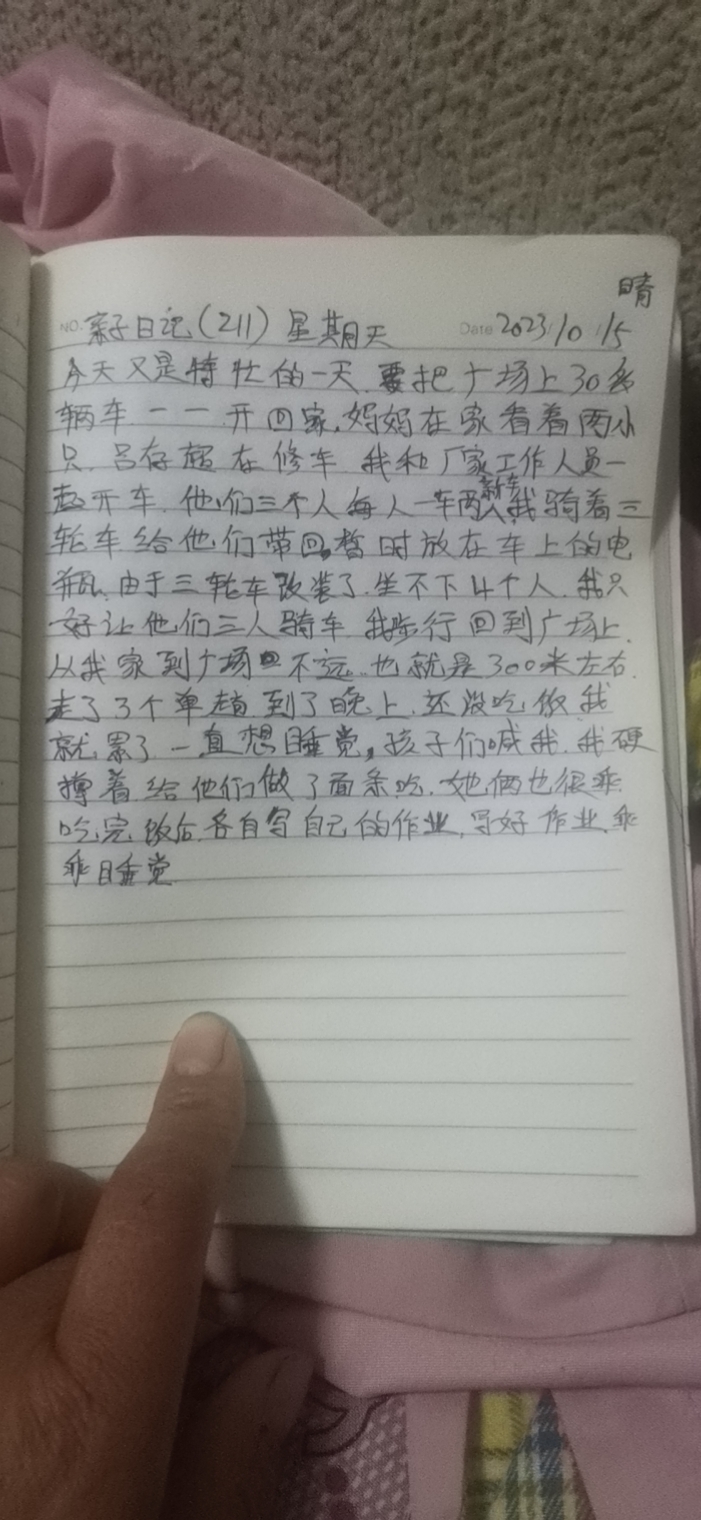 晴
NO. 亲子日记(211) 星期天 Date 2023/10/15
今天又是特壮的一天.要把广场上30多
辆车一一开回家.妈妈在家看着两小
只.吕存超在修车.我和厂家工作人员一
起开车.他们三个人每人一车两人新车.我骑着三
轮车给他们带回暂时放在车上的电
瓶.由于三轮车改装了.坐不下4个人.我只
好让他们三人骑车.我步行回到广场上.
从我家到广场不远.也就是300米左右.
走了3个单趟.到了晚上.还没吃饭我
就累了一直想睡觉,孩子们喊我.我硬
撑着给他们做了面条吃.她俩也很乖.
吃完饭后.各自写自己的作业.写好作业.乖
乖睡觉